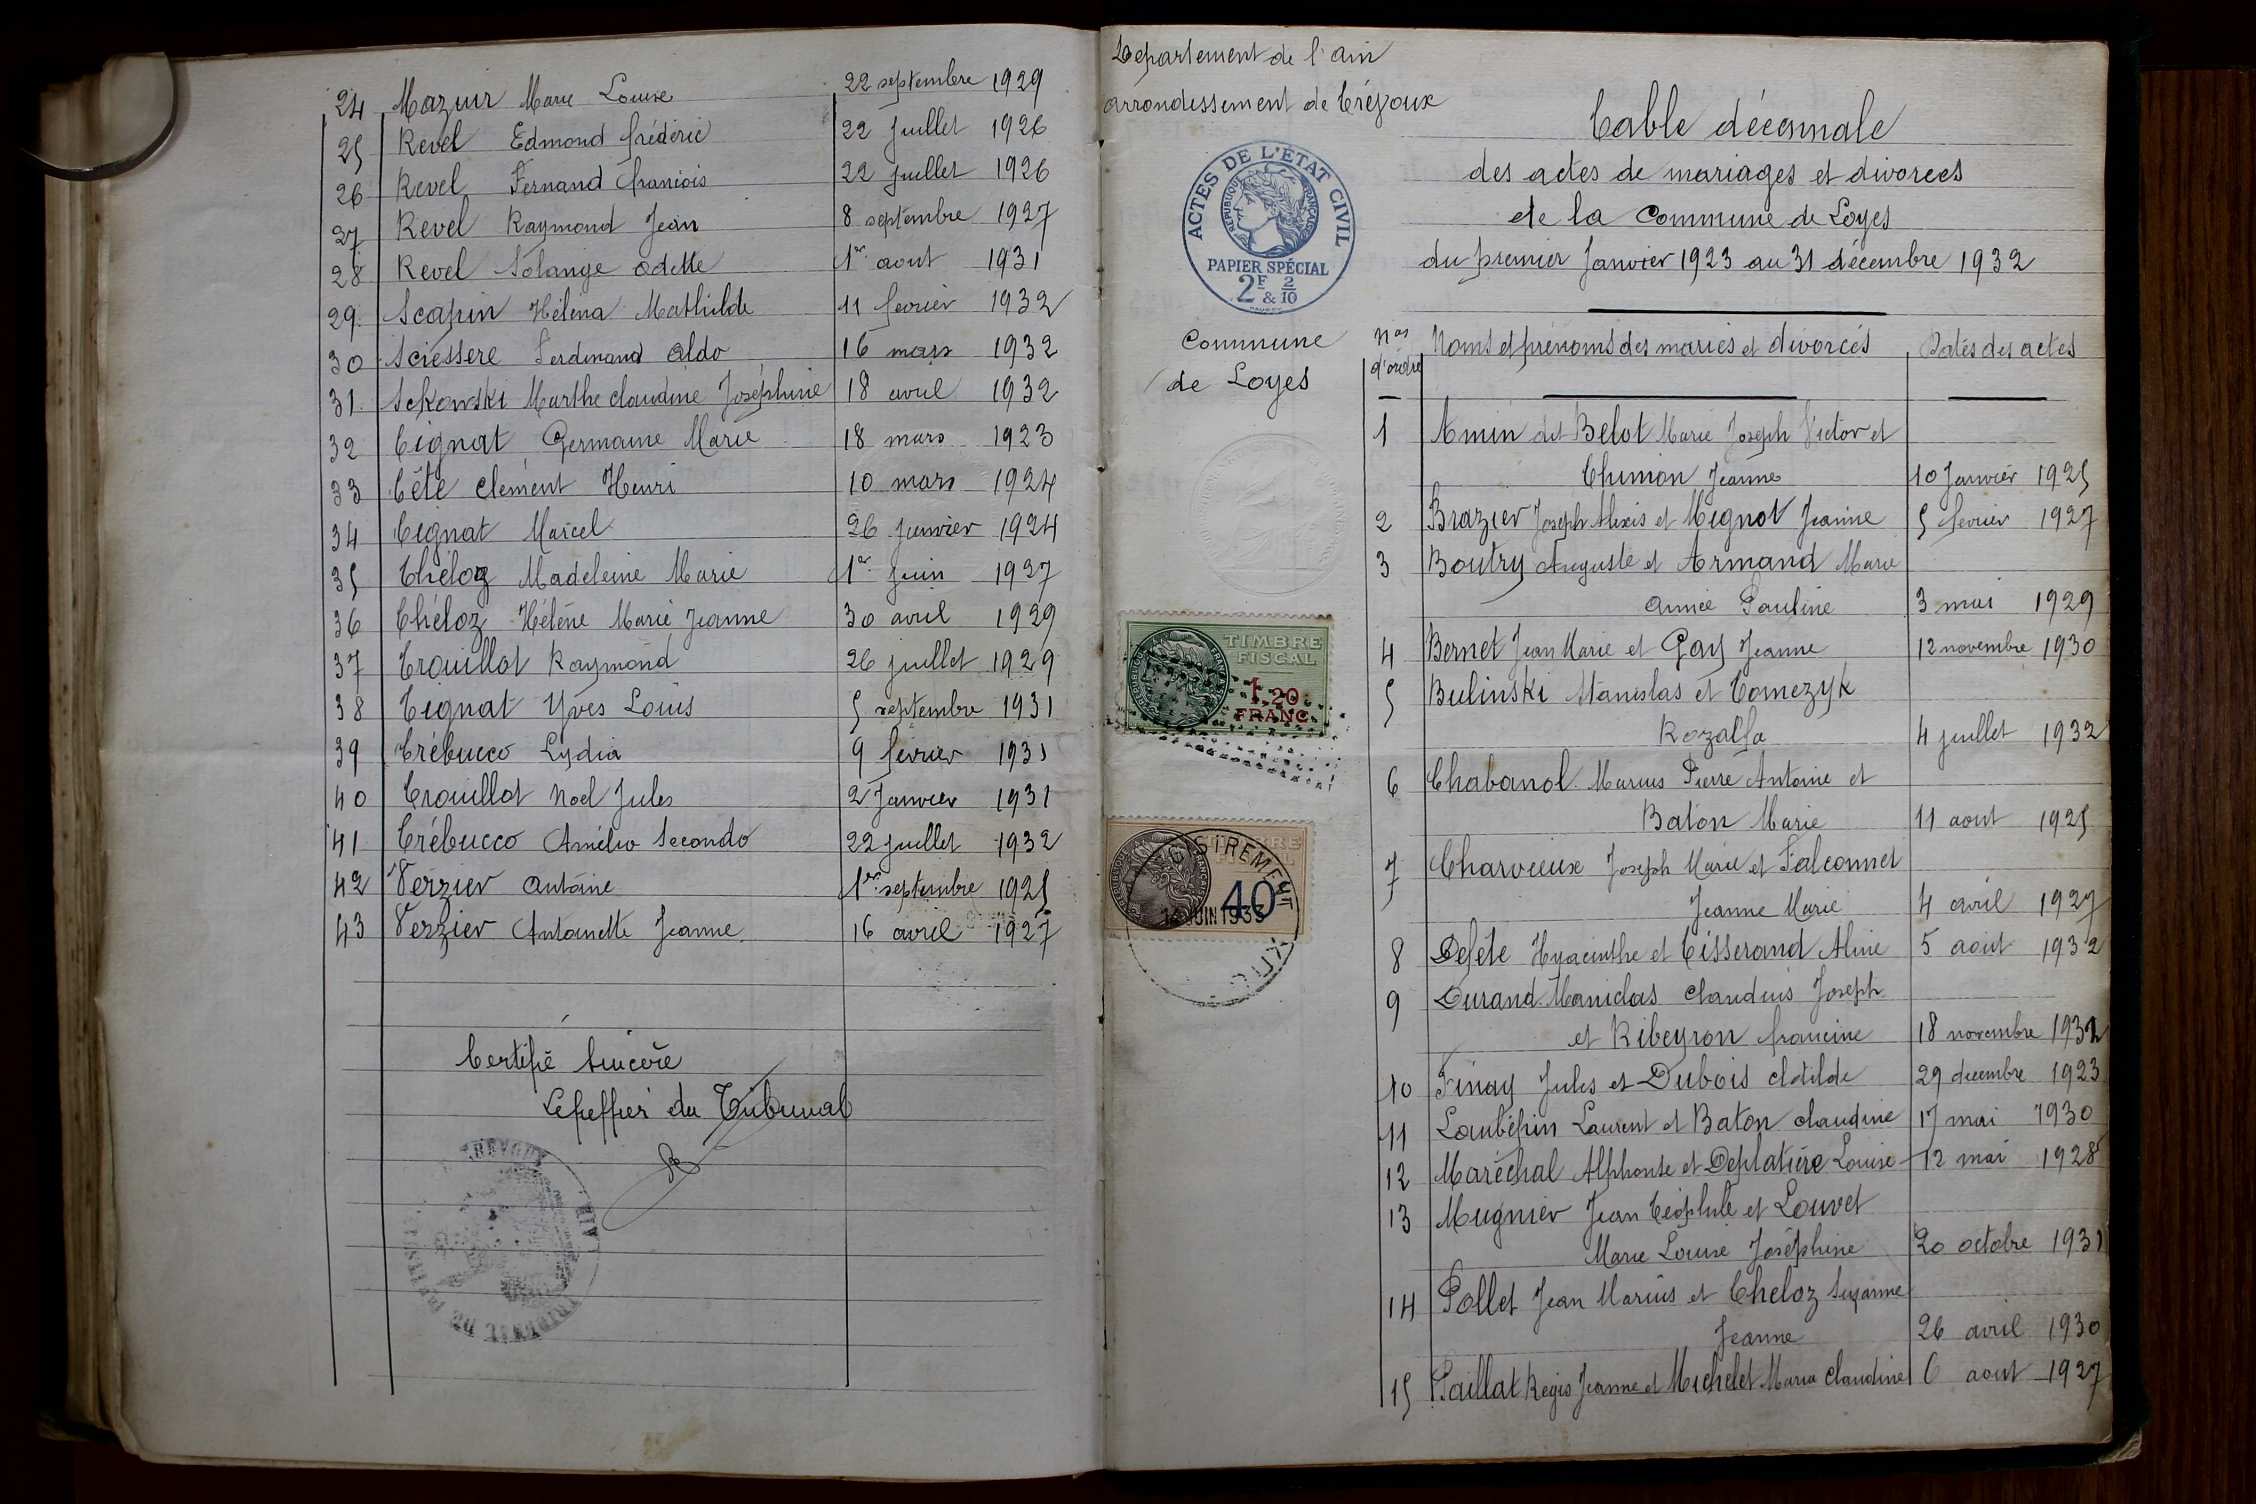 24 Mazuir Marie Louise 22 septembre 1929
25 Revel Edmond frédéric 22 Juillet 1926
26 Revel Fernand francois 22 juillet 1926
27 Revel Raymond Jean 8 septembre 1927
28 Revel Solange Odette 1er aout 1931
29 Scapin Héléna Mathilde 11 fevrier 1932
30 Sciessere Ferdinand Aldo 16 mars 1932
31 Sckowski Marthe claudine Joséphine 18 avril 1932
32 Tignat Germaine Marie 18 mars 1923
33 Tête clément Henri 10 mars 1924
34 Tignat Marcel 26 Janvier 1924
35 Théloz Madeleine Marie 1er juin 1927
36 Théloz Hélène Marie Jeanne 30 avril 1929
37 Trouillot Raymond 26 juillet 1929
38 Tignat Yves Louis 5 septembre 1931
39 Trébucco Lydia 9 février 1931
40 Trouillot Noel Jules 2 Janvier 1931
41 Trébucco Amélio Secondo 22 juillet 1932
42 Verzier Antoine 1er septembre 1925
43 Verzier Antoinette Jeanne 16 avril 1927
Certifié sincère
Le greffier du Tribunal
Departement de l'ain
arrondissement de Trévoux
ACTES DE L'ÉTAT CIVIL
REPUBLIQUE FRANÇAISE
PAPIER SPÉCIAL
2F & 2/10
Commune
de Loyes
TIMBRE
FISCAL
1,20
FRANC
40
14 JUIN 1933
Table décennale
des actes de mariages et divorces
de la Commune de Loyes
du premier Janvier 1923 au 31 décembre 1932
Nos d'ordre Noms et prénoms des mariés et divorcés Dates des actes
1 Amin dit Belot Marie Joseph Victor et
Thimon Jeanne 10 Janvier 1925
2 Brazier Joseph Alexis et Mignot Jeanne 5 fevrier 1927
3 Boutry Auguste et Armand Marie
Annie Pauline 3 mai 1929
4 Bernet Jean Marie et Gay Jeanne 12 novembre 1930
5 Bulinski Stanislas et Tomezyk
Rozalja 4 juillet 1932
6 Chabanol Marius Pierre Antoine et
Baton Marie 11 aout 1925
7 Charvieux Joseph Marie et Falconnet
Jeanne Marie 4 avril 1927
8 Defête Hyacinthe et Tisserand Aline 5 aout 1932
9 Durand Manielas Claudius Joseph
et Ribeyron francine 18 novembre 1932
10 Finay Jules et Dubois clotilde 29 decembre 1923
11 Loubépin Laurent et Baton claudine 17 mai 1930
12 Maréchal Alphonse et Deplatière Louise 12 mai 1928
13 Mugnier Jean Théophile et Louvet
Marie Louise Joséphine 20 octobre 1931
14 Pollet Jean Marius et Theloz Suzanne
Jeanne 26 avril 1930
15 Paillat Régis Jeanne et Michelet Maria Claudine 6 aout 1927